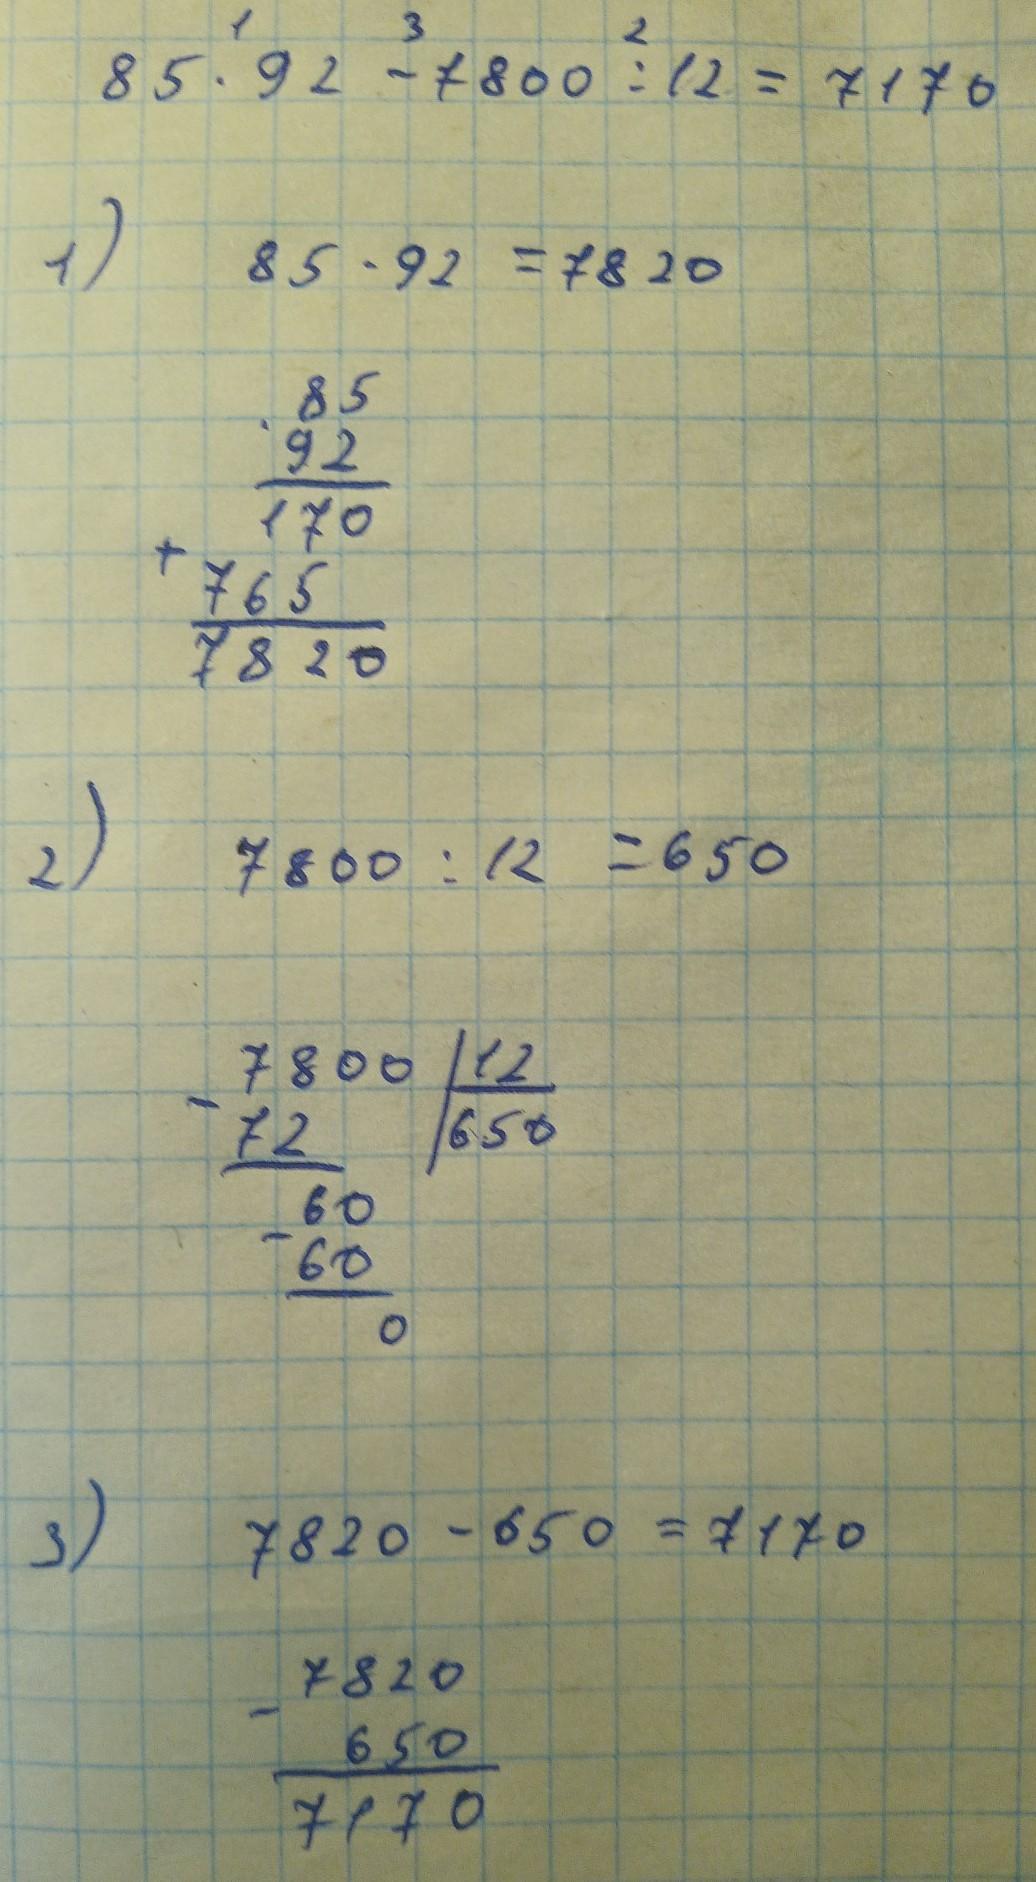 1 3 2
85 · 92 - 7800 : 12 = 7170
1) 85 · 92 = 7820
85
· 92
170
+ 765
7820
2) 7800 : 12 = 650
- 7800 | 12
72 | 650
60
- 60
0
3) 7820 - 650 = 7170
- 7820
650
7170